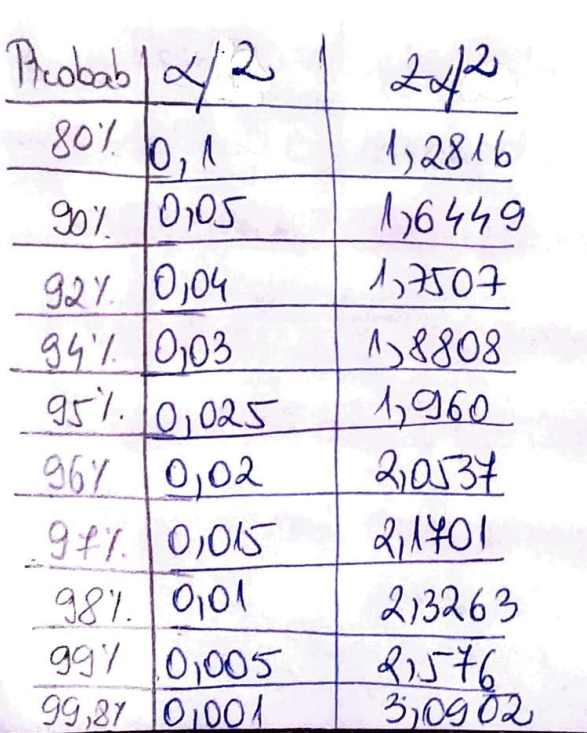 Probab α/2 Zα/2
80% 0,1 1,2816
90% 0,05 1,6449
92% 0,04 1,7507
94% 0,03 1,8808
95% 0,025 1,960
96% 0,02 2,0537
97% 0,015 2,1701
98% 0,01 2,3263
99% 0,005 2,576
99,8% 0,001 3,0902